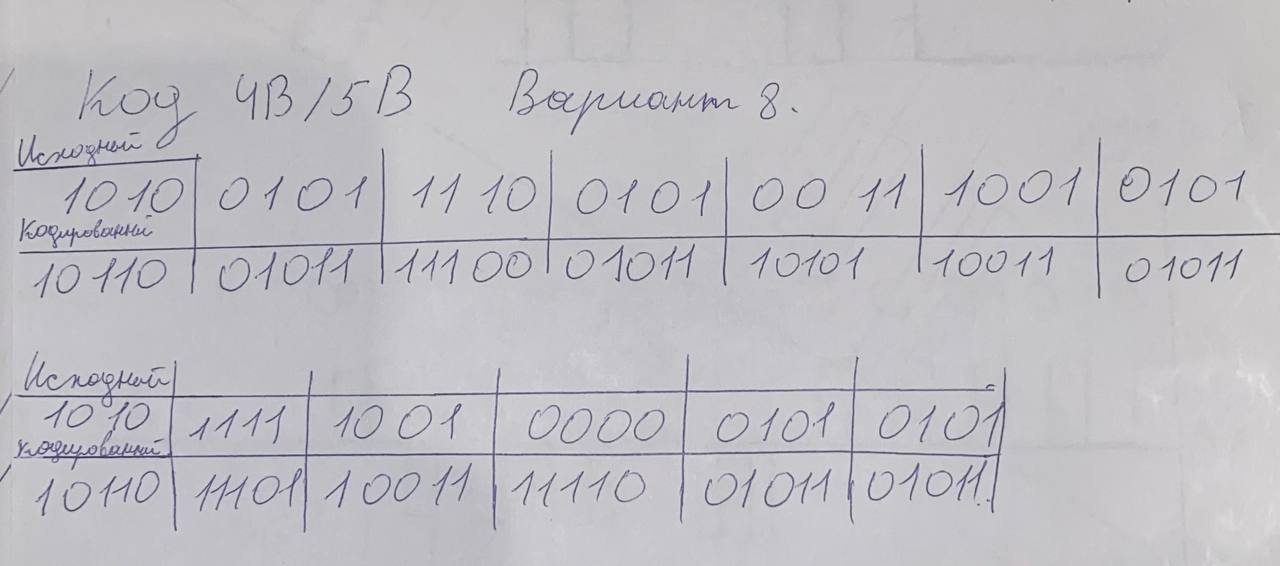 Код 4B/5B Вариант 8.
Исходный
1010 0101 1110 0101 0011 1001 0101
Кодированный
10110 01011 11100 01011 10101 10011 01011
Исходный
1010 1111 1001 0000 0101 0101
Кодированный
10110 11101 10011 11110 01011 01011.